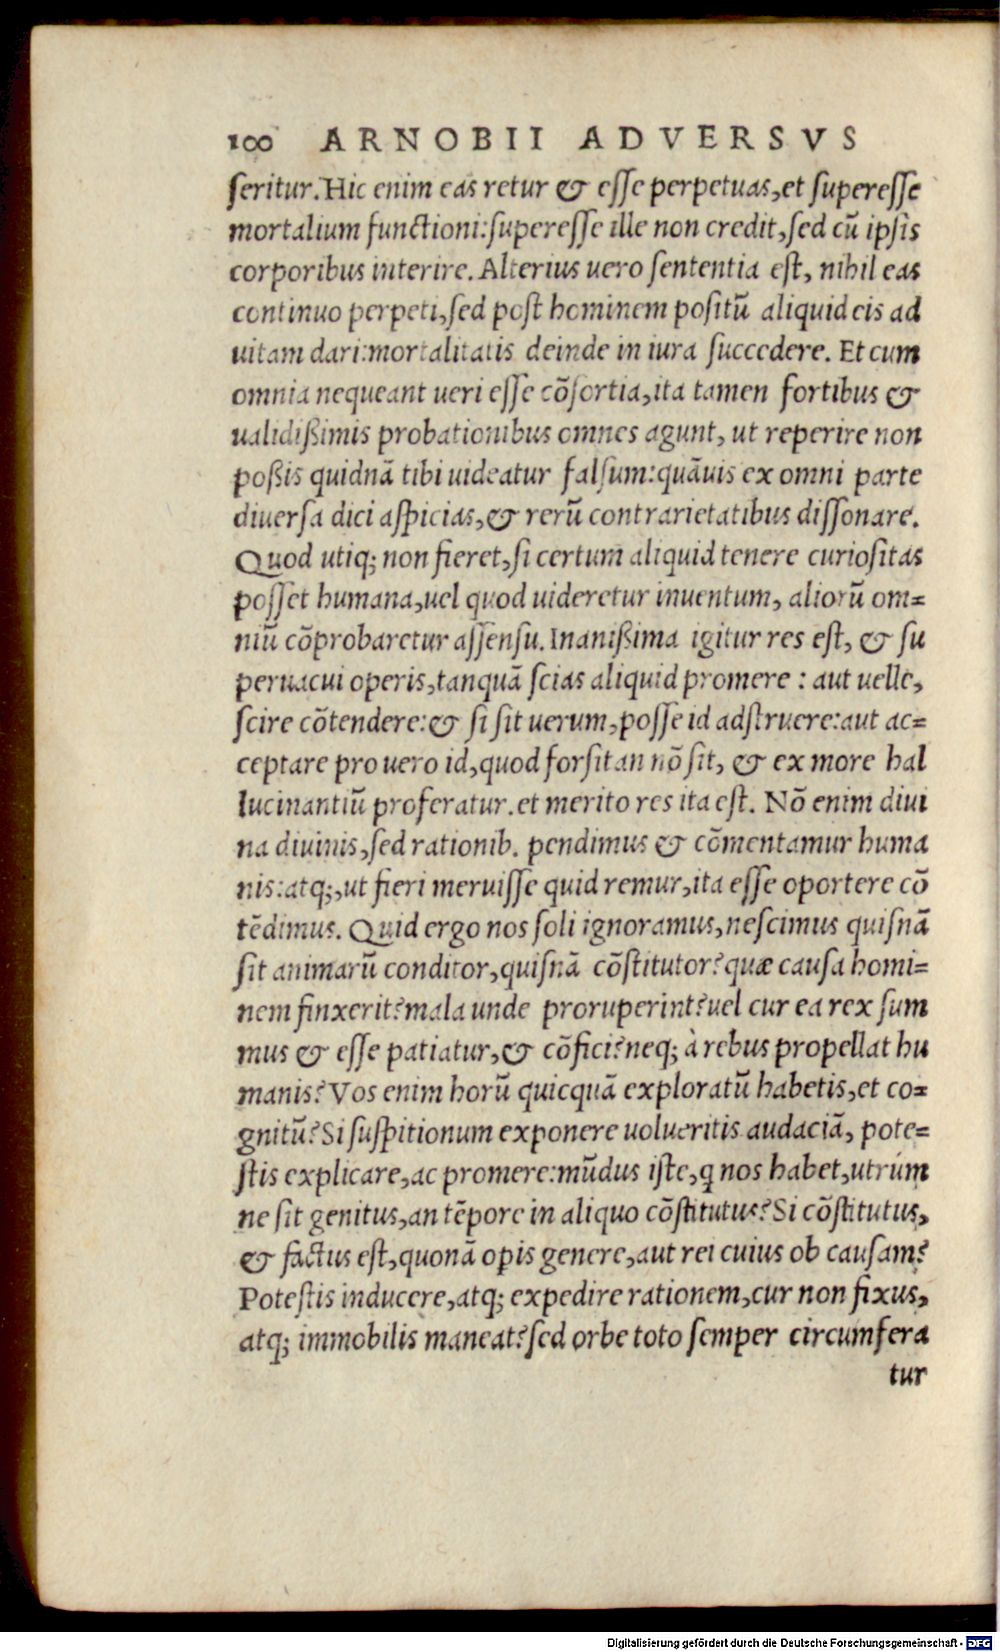 100 ARNOBII ADVERSVS
seritur. Hic enim eas retur & esse perpetuas, et superesse
mortalium functioni: superesse ille non credit, sed cũ ipsis
corporibus interire. Alterius uero sententia est, nihil eas
continuo perpeti, sed post hominem positũ aliquid eis ad
uitam dari: mortalitatis deinde in iura succedere. Et cum
omnia nequeant ueri esse cõsortia, ita tamen fortibus &
ualidißimis probationibus omnes agunt, ut reperire non
poßis quidnã tibi uideatur falsum: quãuis ex omni parte
diuersa dici aspicias, & rerũ contrarietatibus dissonare.
Quod utiq; non fieret, si certum aliquid tenere curiositas
posset humana, uel quod uideretur inuentum, aliorũ om=
niũ cõprobaretur assensu. Inanißima igitur res est, & su
peruacui operis, tanquã scias aliquid promere: aut uelle,
scire cõtendere: & si sit uerum, posse id adstruere: aut ac=
ceptare pro uero id, quod forsitan nõ sit, & ex more hal
lucinantiũ proferatur. et merito res ita est. Nõ enim diui
na diuinis, sed rationib. pendimus & cõmentamur huma
nis: atq;, ut fieri meruisse quid remur, ita esse oportere cõ
tẽdimus. Quid ergo nos soli ignoramus, nescimus quisnã
sit animarũ conditor, quisnã cõstitutor? quæ causa homi=
nem finxerit? mala unde proruperint? uel cur ea rex sum
mus & esse patiatur, & cõfici? neq; à rebus propellat hu
manis? Vos enim horũ quicquã exploratũ habetis, et co=
gnitũ? Si suspitionum exponere uolueritis audaciã, pote=
stis explicare, ac promere: mũdus iste, q nos habet, utrúm
ne sit genitus, an tẽpore in aliquo cõstitutus? Si cõstitutus,
& factus est, quonã opis genere, aut rei cuius ob causam?
Potestis inducere, atq; expedire rationem, cur non fixus,
atq; immobilis maneat? sed orbe toto semper circumfera
tur
Digitalisierung gefördert durch die Deutsche Forschungsgemeinschaft - DFG